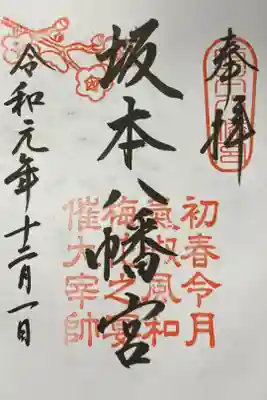 奉拝
坂本八幡宮
初春令月
氣淑風和
梅花之宴
催大宰帥
令和元年十二月一日